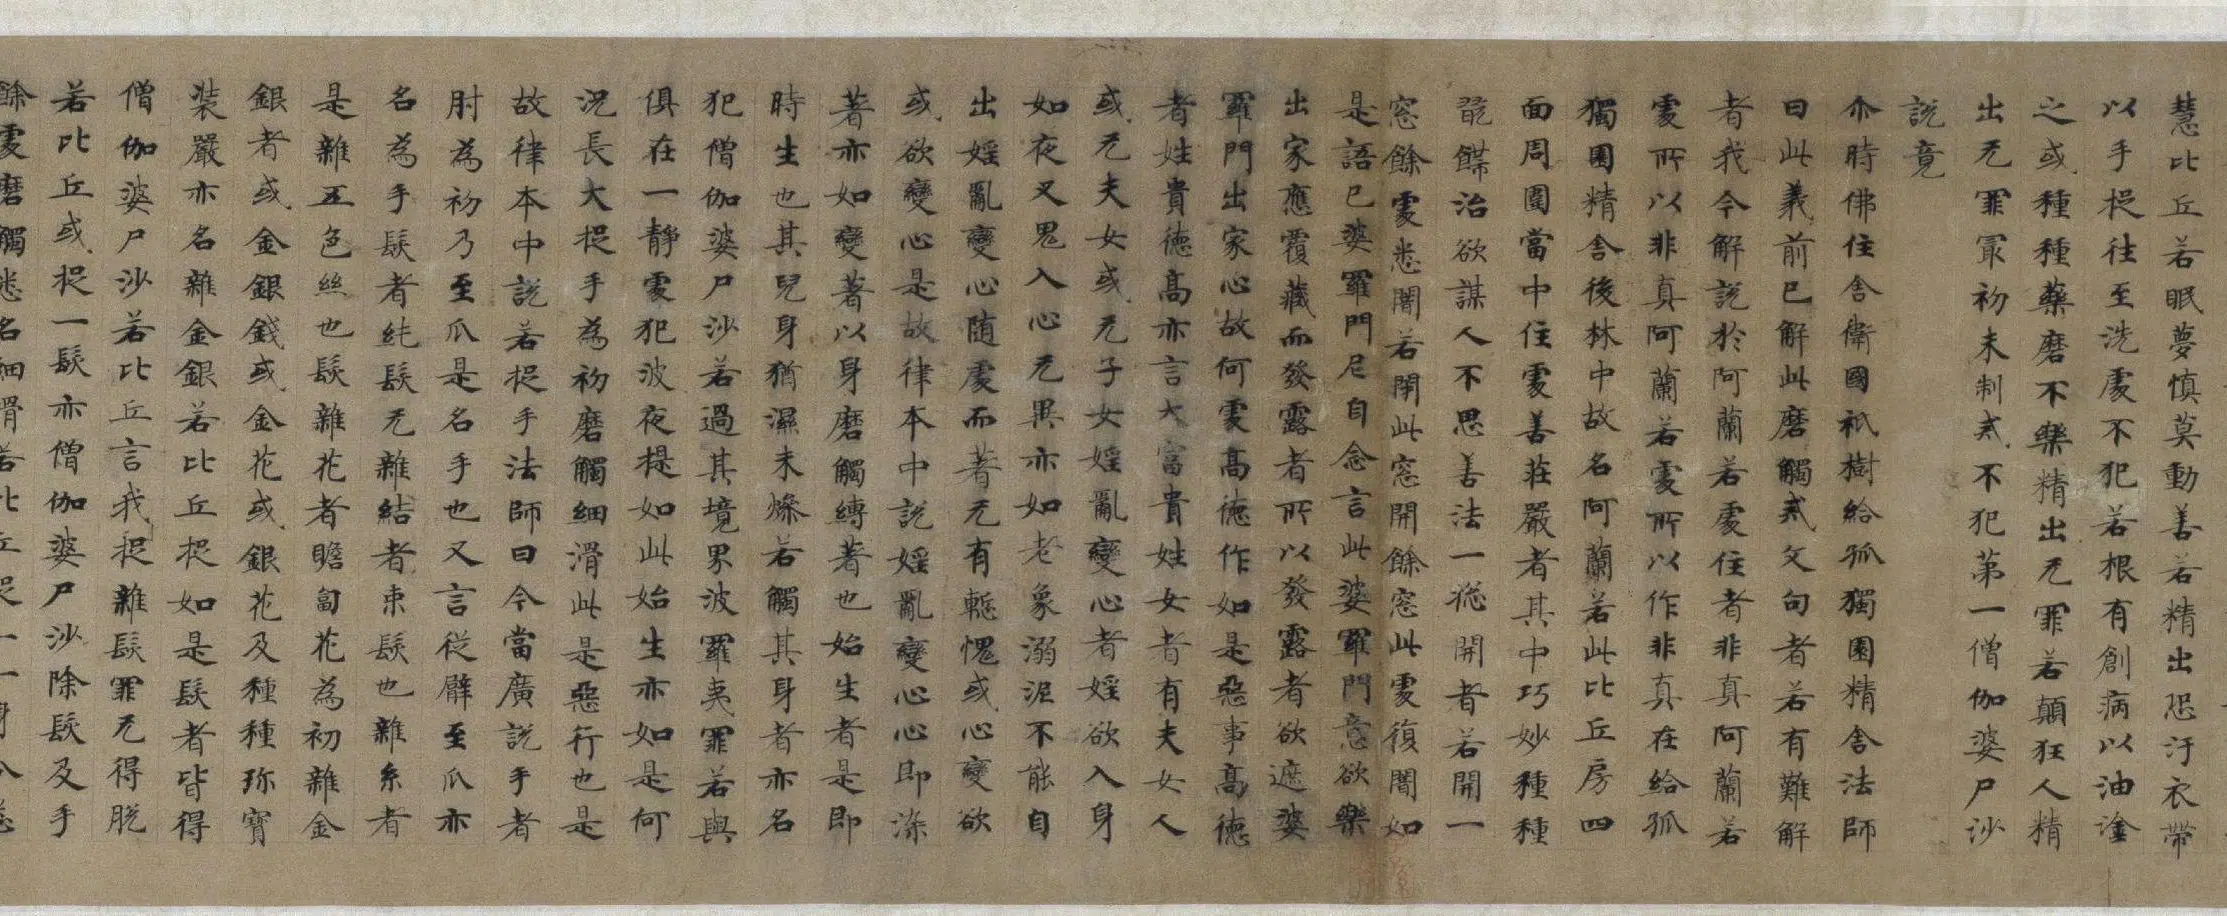 慧比丘若眠夢慎莫動善若精出恐汙衣帶
以手捉往至洗處不犯若根有創病以油塗
之或種種藥磨不樂精出无罪若顛狂人精
出无罪冣初未制戒不犯第一僧伽婆尸沙
說竟
尒時佛住舍衛國祇樹給孤獨園精舍法師
曰此義前已解此磨觸戒文句者若有難解
者我今解說於阿蘭若處住者非真阿蘭若
處所以非真阿蘭若處所以作非真在給孤
獨園精舍後林中故名阿蘭若此比丘房四
面周圍當中住處善莊嚴者其中巧妙種種
治欲謀人不思善法一㧾開者若開一
窓餘處悉闇若閇此窓開餘窓此處復闇如
是語已婆羅門尼自念言此婆羅門意欲樂
出家應覆藏而發露者所以發露者欲遮婆
羅門出家心故何處高德作如是惡事高德
者姓貴德高亦言大富貴姓女者有夫女人
或无夫女或无子女婬亂變心者婬欲入身
如夜叉鬼入心无異亦如老象溺泥不能自
出婬亂變心隨處而著无有慙愧或心變欲
或欲變心是故律本中說婬亂變心心即染
著亦如變著以身磨觸縛著也始生者是即
時生也其兒身猶濕未燥若觸其身者亦名
犯僧伽婆尸沙若過其境界波羅夷罪若與
俱在一靜處犯波夜提如此始生亦如是何
況長大捉手為初磨觸細滑此是惡行也是
故律本中說若捉手法師曰今當廣說手者
肘為初乃至爪是名手也又言從臂至爪亦
名為手髮者純髮无雜結者束髮也雜糸者
是雜五色絲也髮雜花者瞻匐花為初雜金
銀者或金銀錢或金花或銀花及種種珎寶
裝嚴亦名雜金銀若比丘捉如是髮者皆得
僧伽婆尸沙若比丘言我捉雜髮罪无得脫
若比丘或捉一髮亦僧伽婆尸沙除髮及手
餘處磨觸悉名細滑若比丘捉一一身分悉